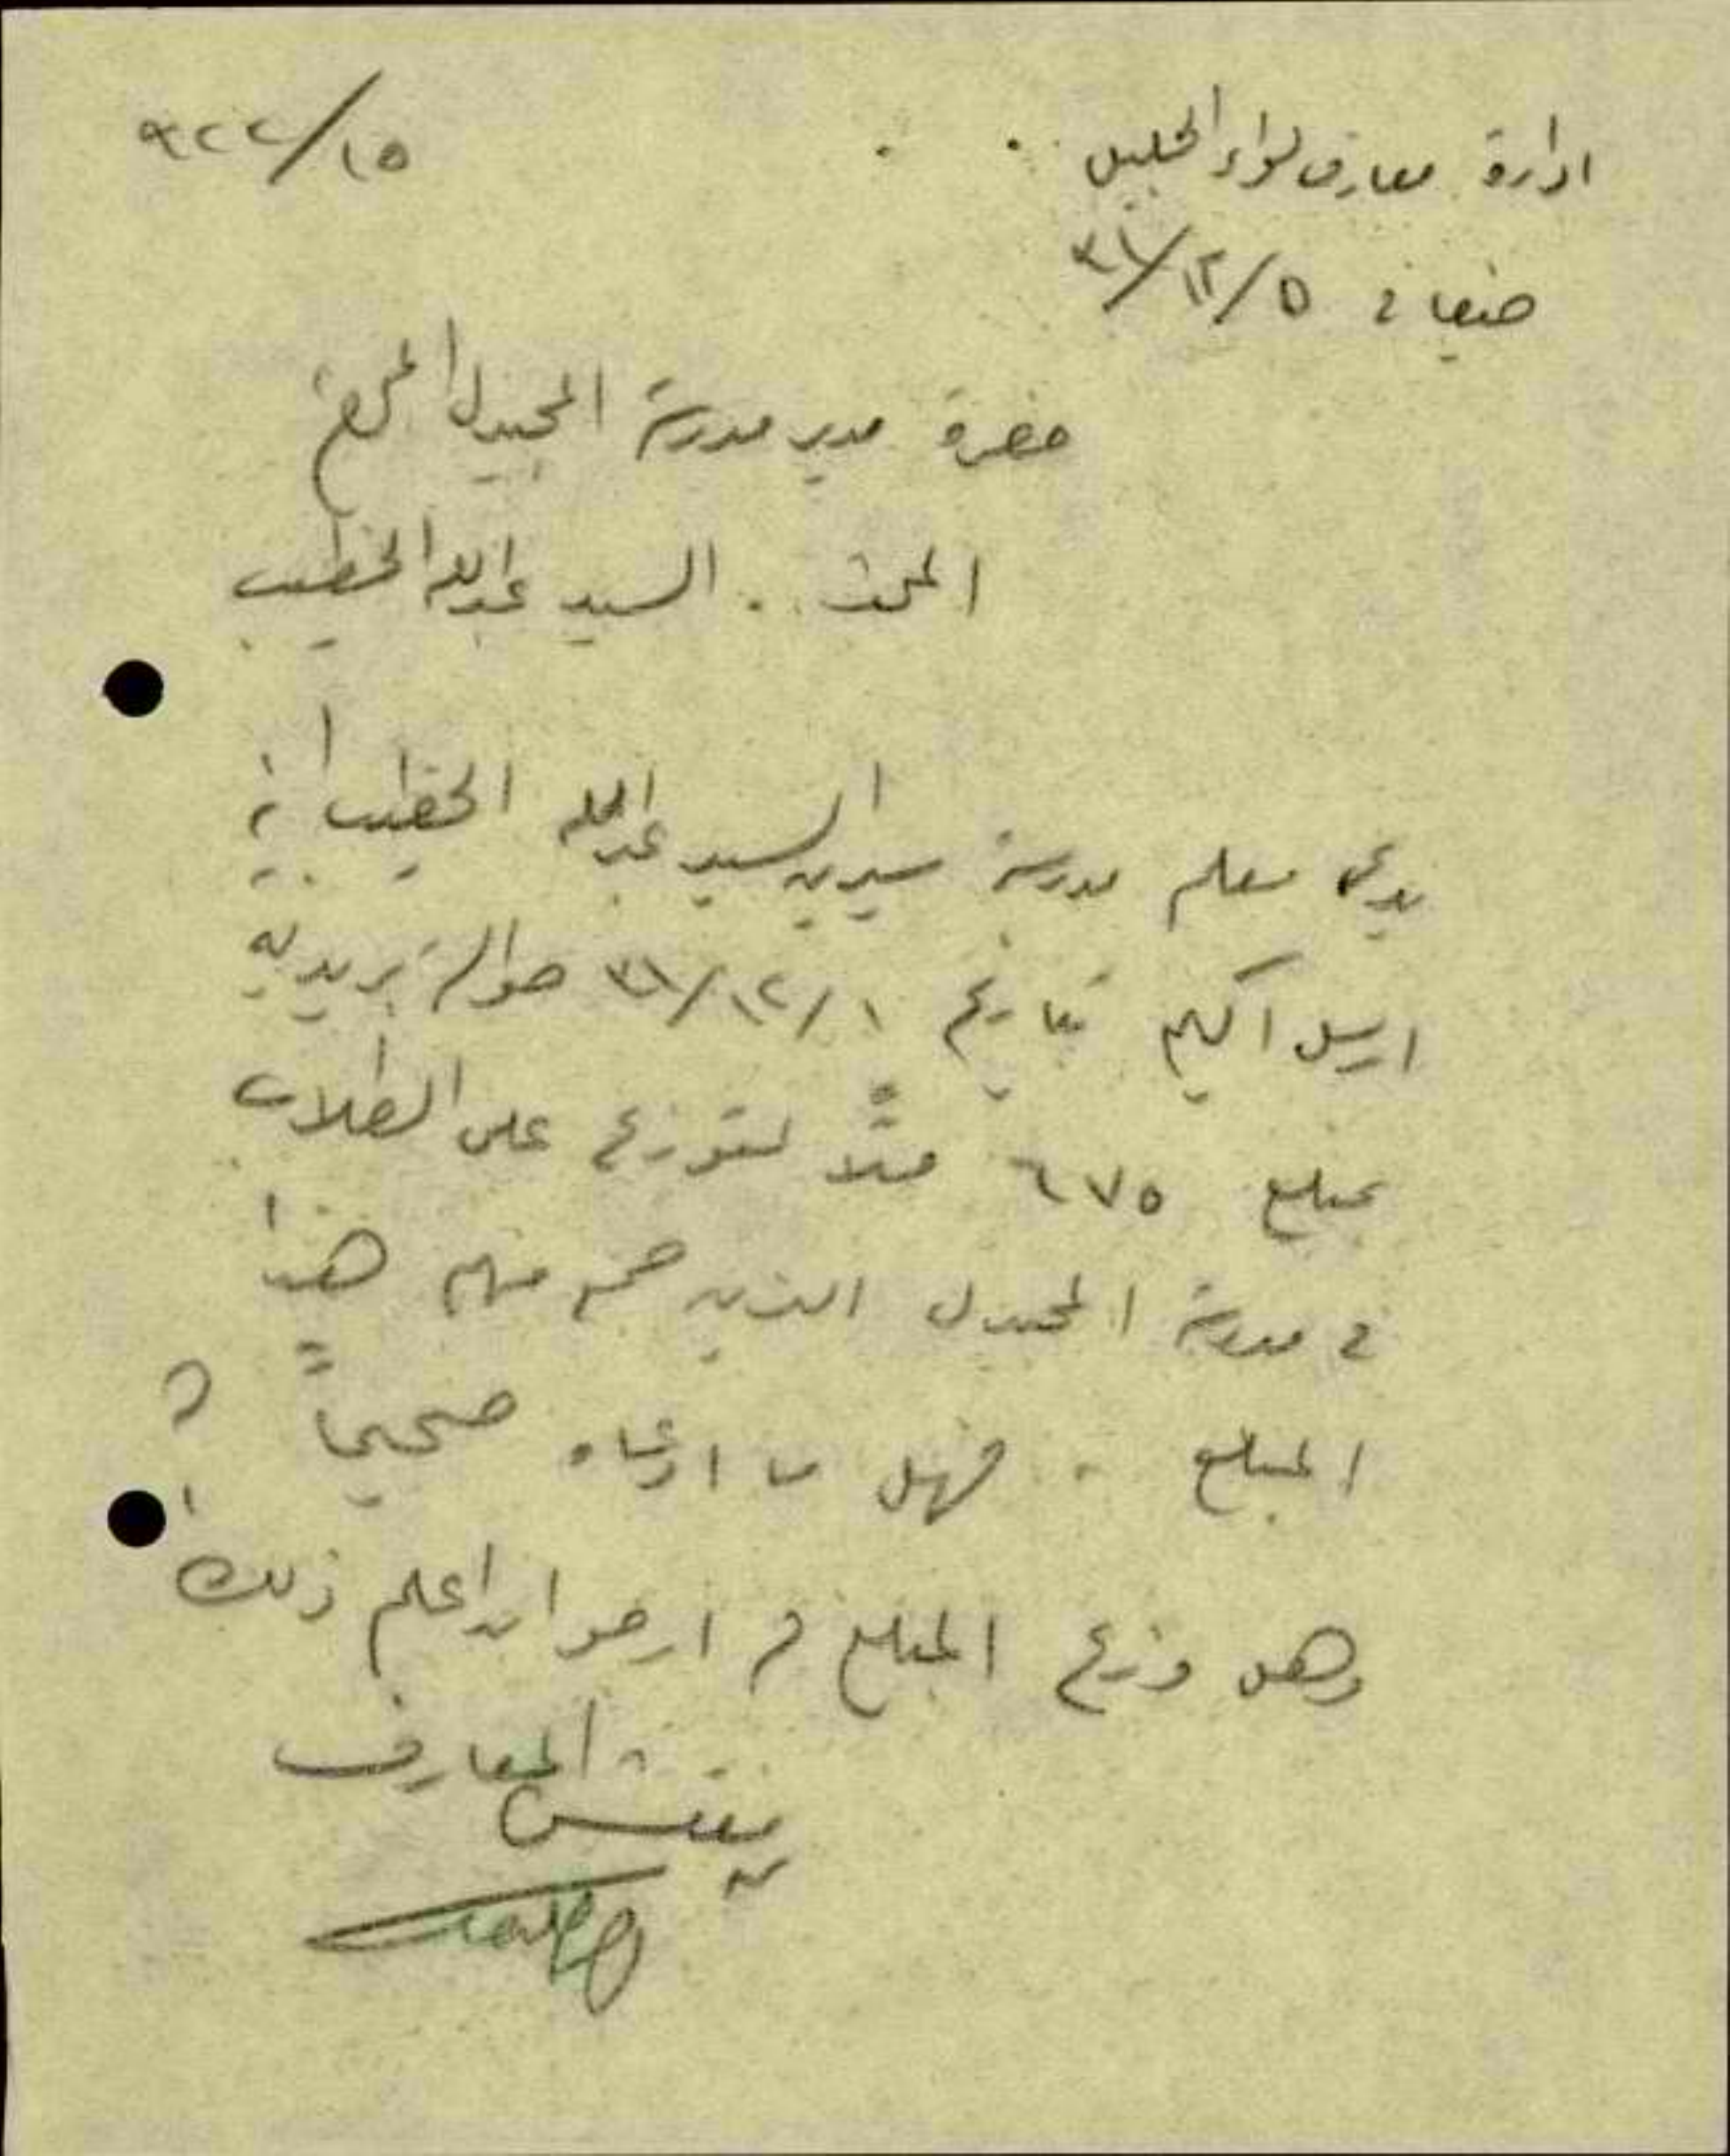 ادارة معارف لواء الجليل
٩٢٢/١٥
حيفا في ٥/١٢/٣١
حضرة مدير مدرسة المجيدل المحترم
البحث . السيد عبدالله الخطيب
يدعي معلم مدرسة سيرين السيد عبدالله الخطيب انه
ارسل اليكم بتاريخ ١/١٢/٣١ حوالة بريدية
بمبلغ ٦٧٥ ملاً لتوزع على الطلاب
في مدرسة المجيدل الذين جمع منهم هذا
المبلغ . فهل ما ادعاه صحيحاً ؟
وهل وزع المبلغ ؟ ارجو ان اعلم ذلك
مفتش المعارف